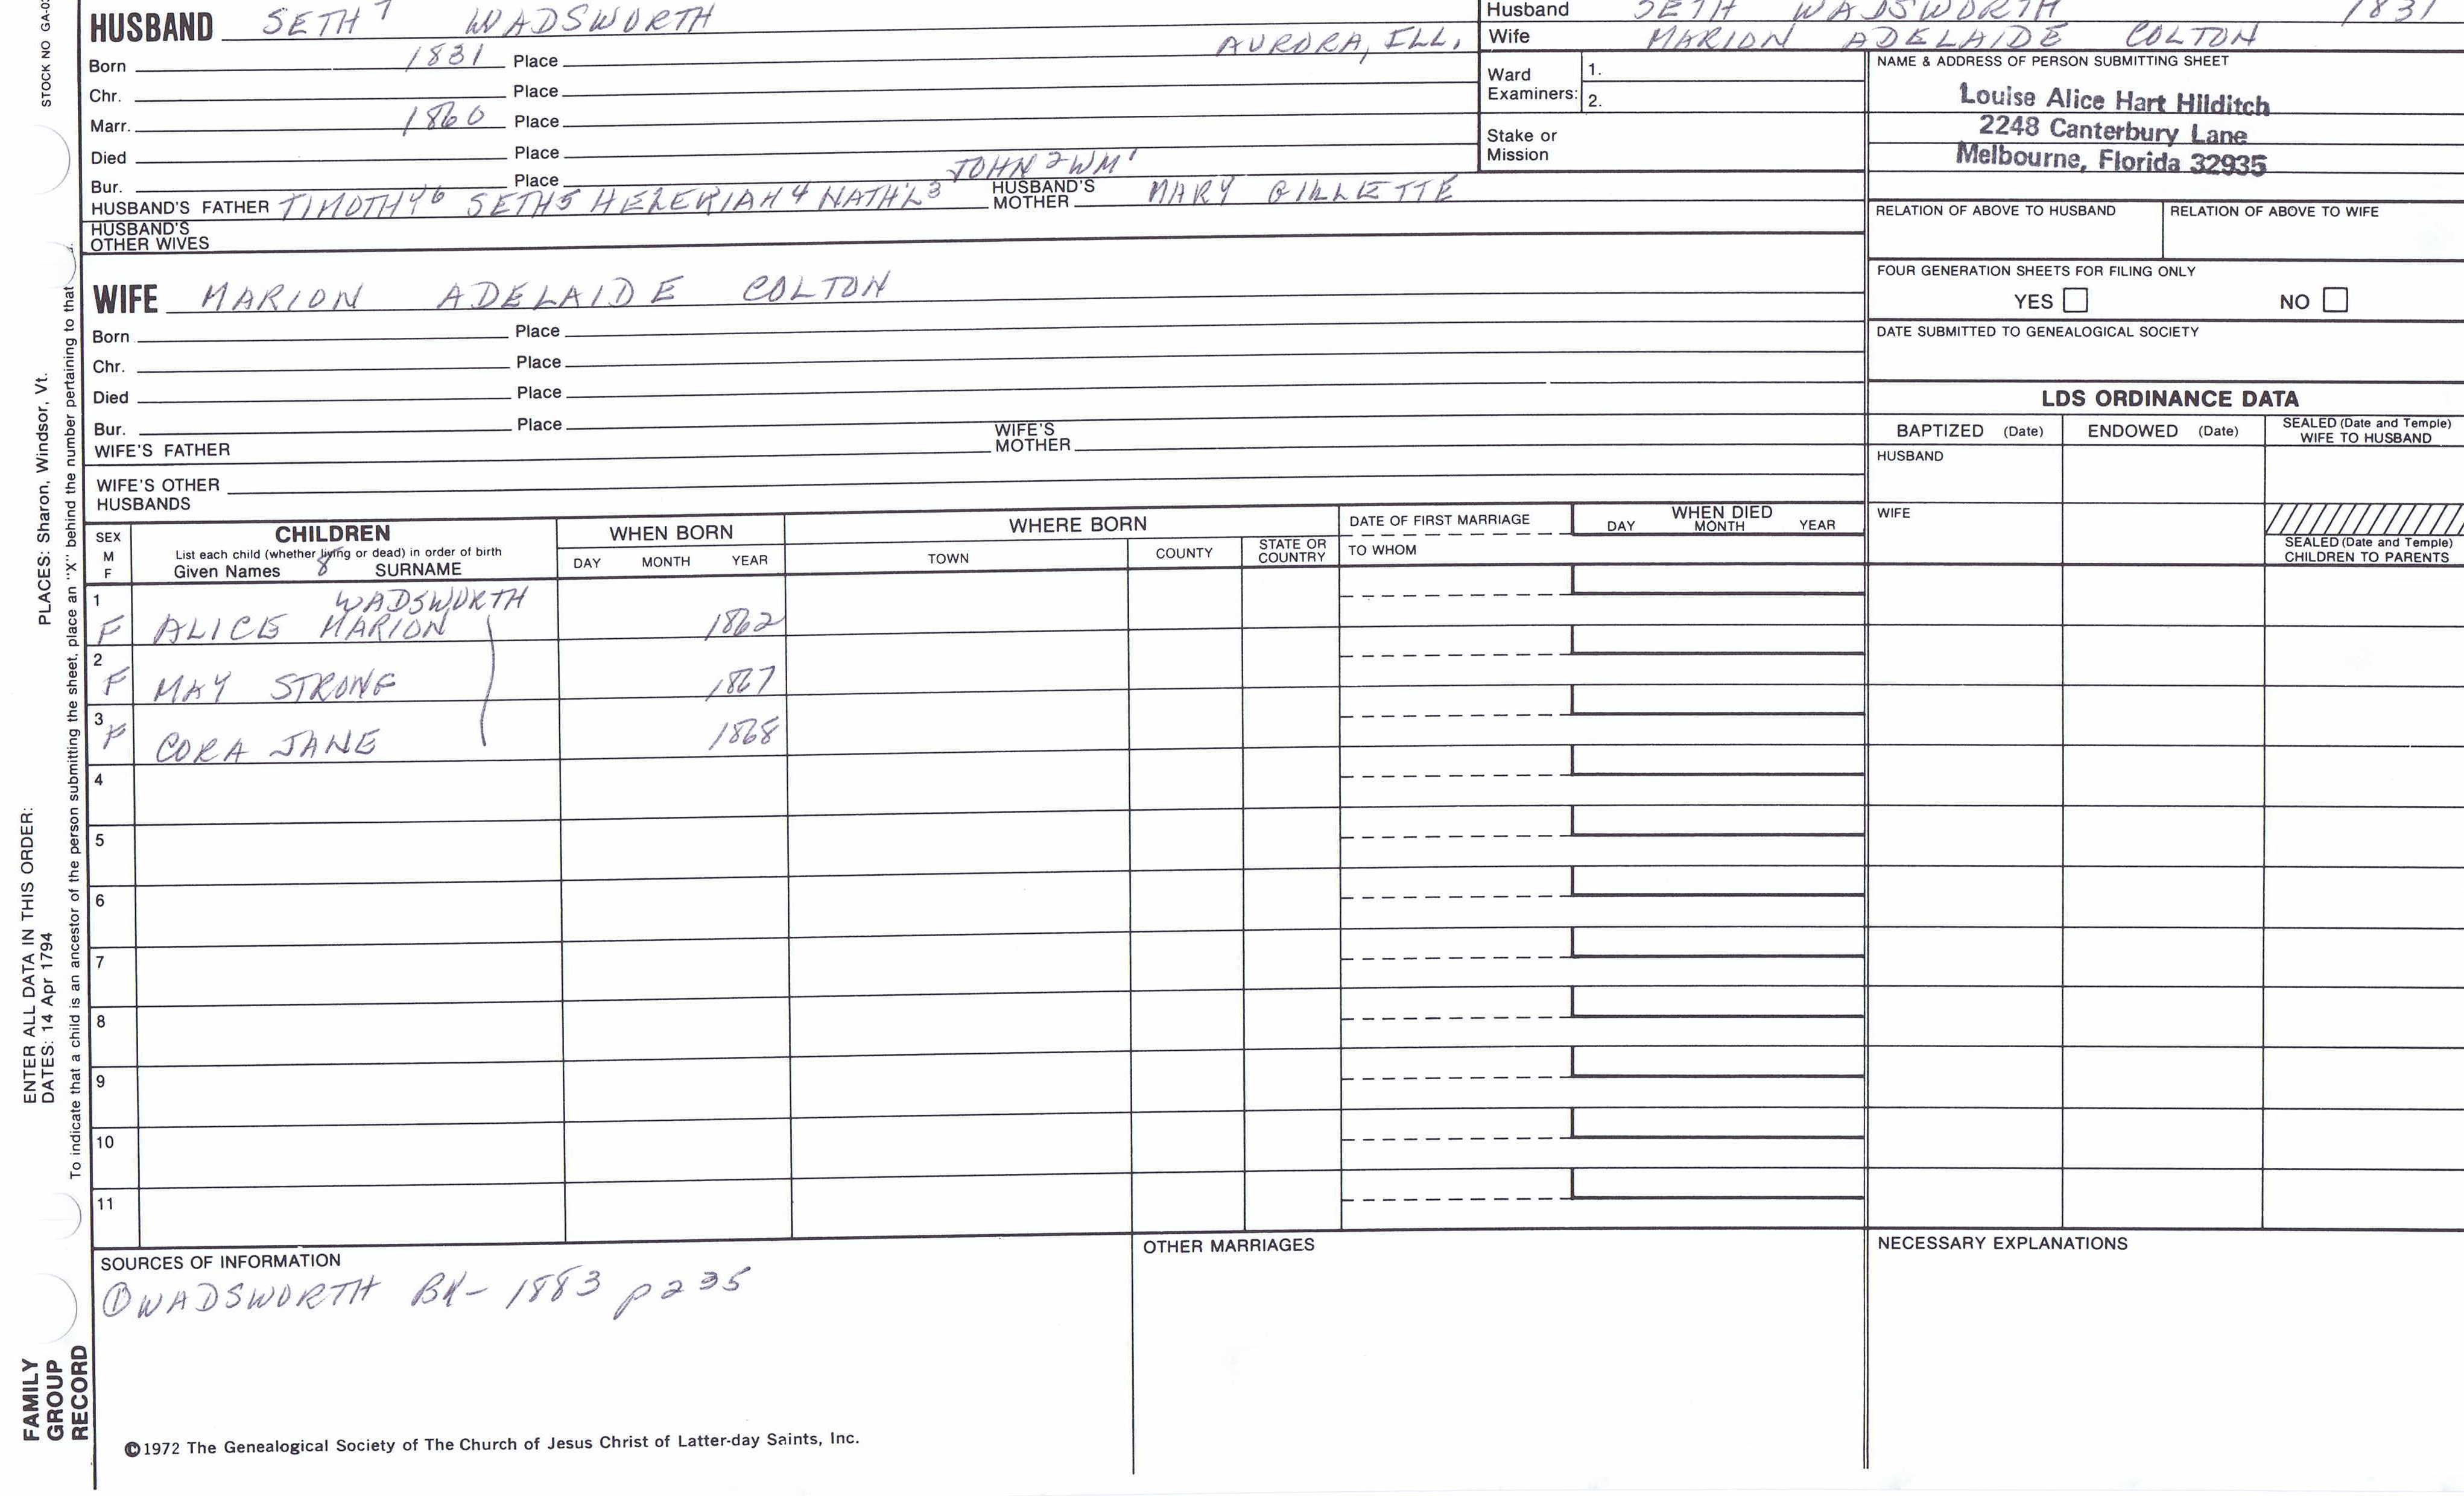 HUSBAND SETH 7 WADSWORTH AURORA, ILL.
Born 1831 Place
Chr. Place
Marr. 1860 Place
Died Place
Bur. Place JOHN 2 WM 1
HUSBAND'S FATHER TIMOTHY 6 SETH 5 HEZEKIAH 4 NATH'L 3 HUSBAND'S MOTHER MARY GILLETTE
HUSBAND'S
OTHER WIVES
WIFE MARION ADELAIDE COLTON
Born Place
Chr. Place
Died Place
Bur. Place
WIFE'S FATHER WIFE'S MOTHER
WIFE'S OTHER
HUSBANDS
Husband SETH WADSWORTH 1831
Wife MARION ADELAIDE COLTON
Ward
Examiners: 1.
2.
Stake or
Mission
NAME & ADDRESS OF PERSON SUBMITTING SHEET
Louise Alice Hart Hilditch
2248 Canterbury Lane
Melbourne, Florida 32935
RELATION OF ABOVE TO HUSBAND RELATION OF ABOVE TO WIFE
FOUR GENERATION SHEETS FOR FILING ONLY
YES NO
DATE SUBMITTED TO GENEALOGICAL SOCIETY
LDS ORDINANCE DATA
BAPTIZED (Date) ENDOWED (Date) SEALED (Date and Temple)
WIFE TO HUSBAND
HUSBAND
WIFE
SEALED (Date and Temple)
CHILDREN TO PARENTS
SEX
M
F
CHILDREN
List each child (whether living or dead) in order of birth
Given Names 8 SURNAME
WHEN BORN
DAY MONTH YEAR
WHERE BORN
TOWN COUNTY STATE OR
COUNTRY
DATE OF FIRST MARRIAGE
TO WHOM
WHEN DIED
DAY MONTH YEAR
1 WADSWORTH
F ALICE MARION 1862
2
F MAY STRONG 1867
3
F CORA JANE 1868
4
5
6
7
8
9
10
11
SOURCES OF INFORMATION
① WADSWORTH BK- 1883 p 235
OTHER MARRIAGES
NECESSARY EXPLANATIONS
©1972 The Genealogical Society of The Church of Jesus Christ of Latter-day Saints, Inc.
STOCK NO GA-0
PLACES: Sharon, Windsor, Vt.
ENTER ALL DATA IN THIS ORDER:
DATES: 14 Apr 1794
To indicate that a child is an ancestor of the person submitting the sheet, place an "X" behind the number pertaining to that
FAMILY
GROUP
RECORD